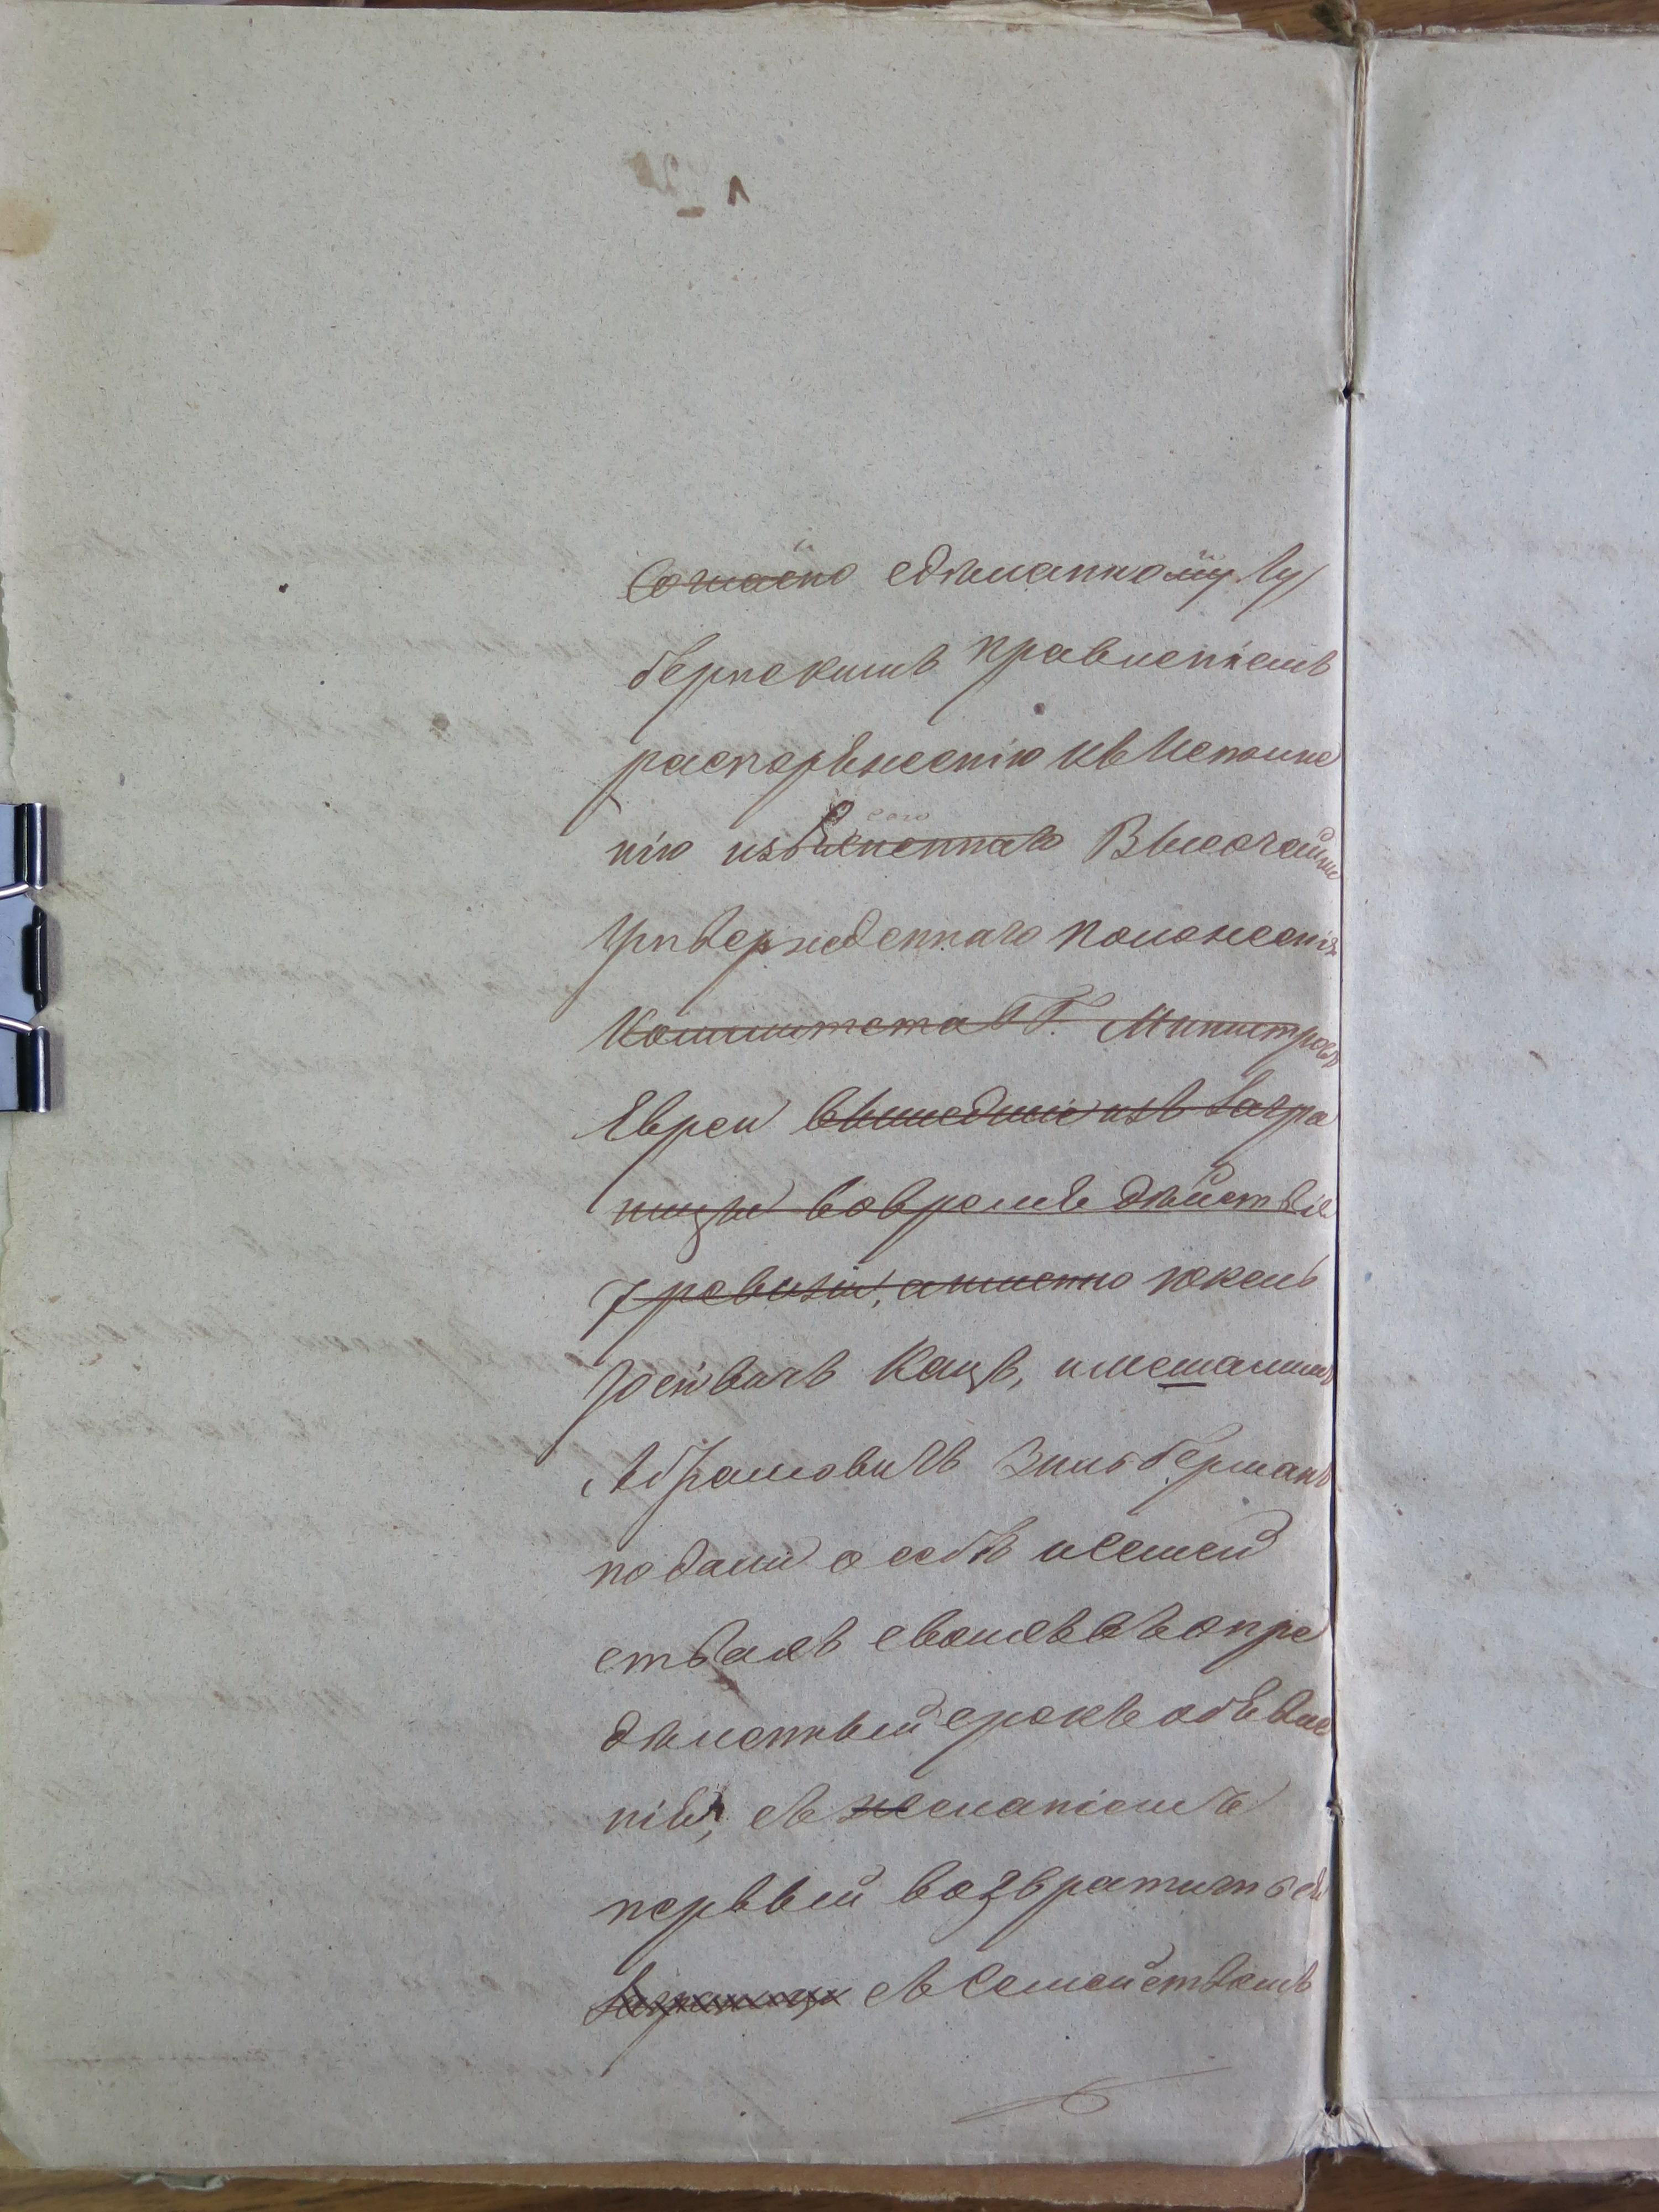 Согласно сдѣланному Гу
бернскимъ правленіемъ
распоряженію къ Исполне
нію изъясненнаго сего Высочайше
Утвержденнаго положенія
Коммитета ГГ. Министровъ
Евреи вышедшіе изъ Загра
ницы во время дѣйствія
7 ревизіи, а именно
Кацъ,
Абрамовичъ Зильберманъ
подали о себѣ и Семей
ствахъ своихъ въ опре
дѣленный срокъ объявле
нія, съ желаніемъ
первый возвратиться
Заграницу съ Семействомъ